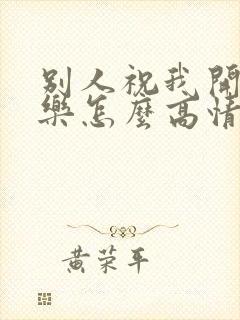 别人祝我開
樂怎麼高情
黄荣平